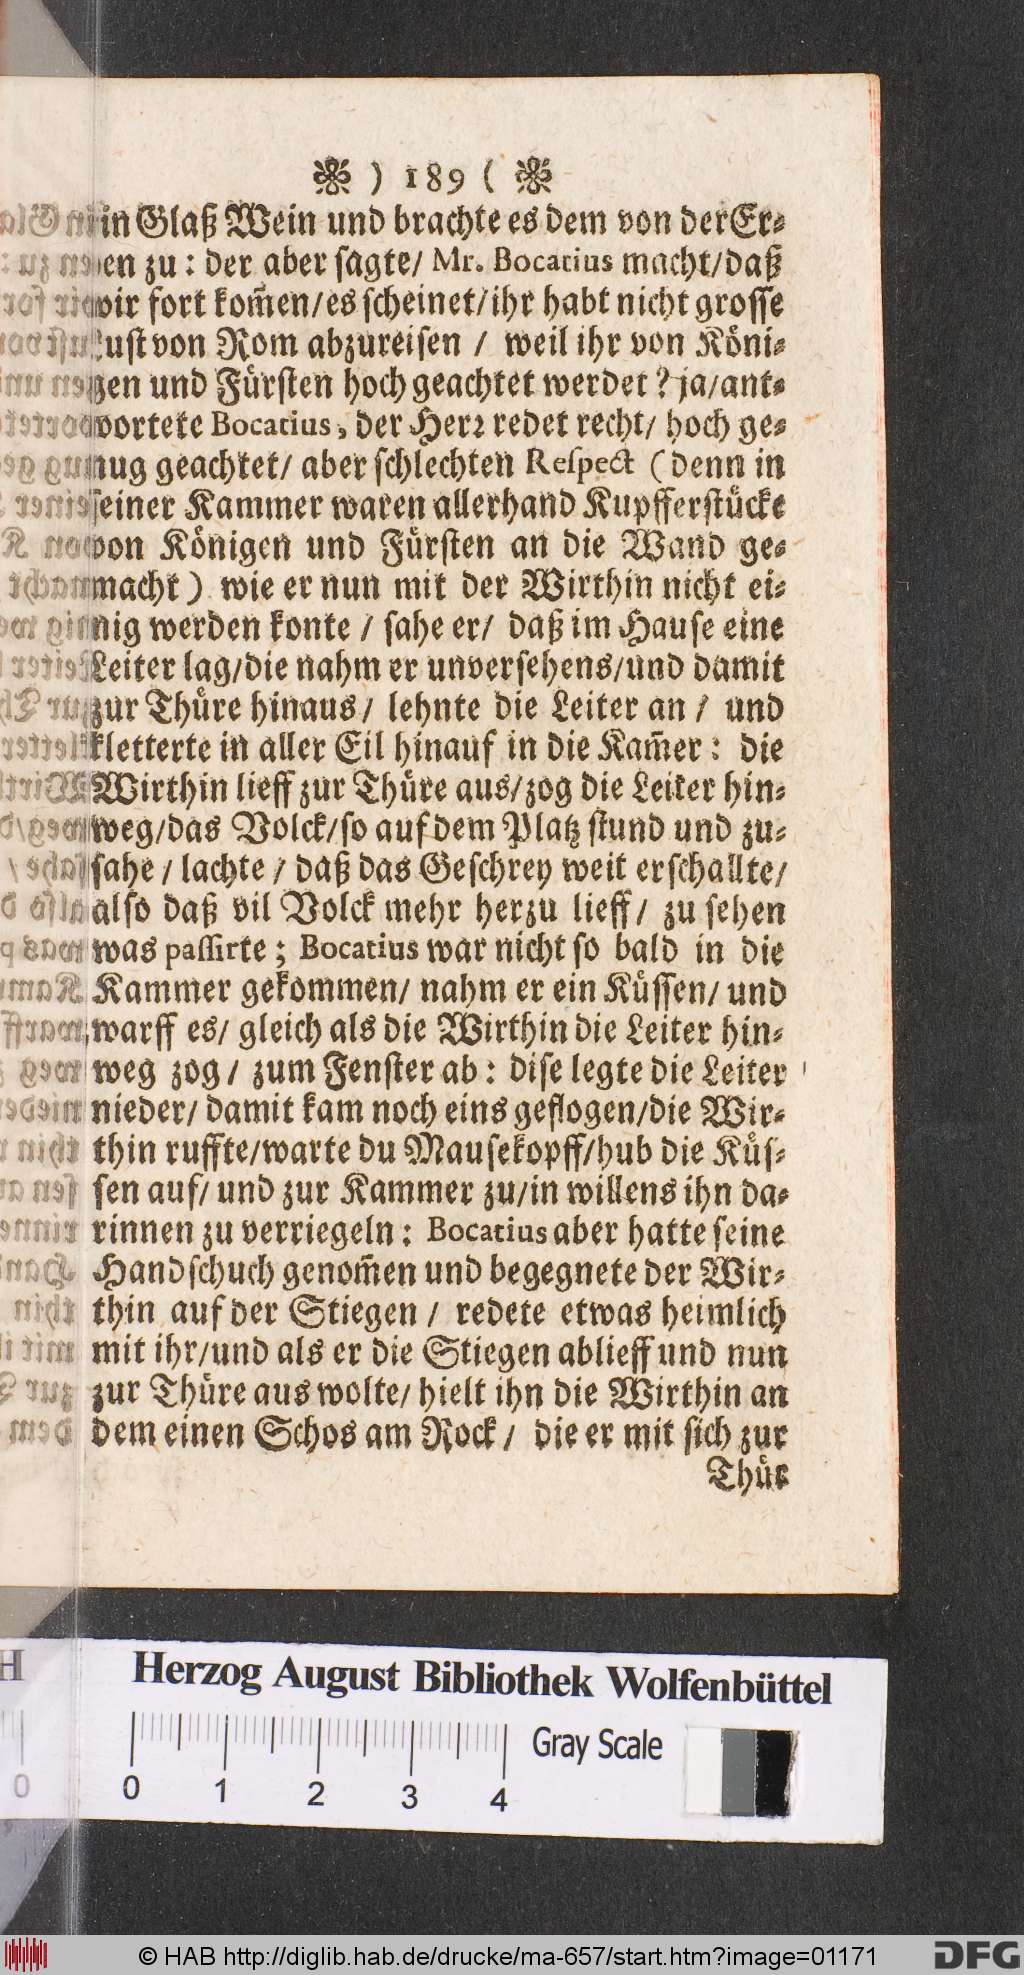 ) 189 (
in Glaß Wein und brachte es dem von der Er-
en zu: der aber sagte/ Mr. Bocatius macht/daß
wir fort kom̃en/es scheinet/ihr habt nicht grosse
Lust von Rom abzureisen / weil ihr von Köni-
gen und Fürsten hoch geachtet werdet? ja/ant-
wortete Bocatius, der Herꝛ redet recht/ hoch ge-
nug geachtet/ aber schlechten Reſpect (denn in
seiner Kammer waren allerhand Kupfferstücke
von Königen und Fürsten an die Wand ge-
macht) wie er nun mit der Wirthin nicht ei-
nig werden konte / sahe er/ daß im Hause eine
Leiter lag/die nahm er unversehens/und damit
zur Thüre hinaus/ lehnte die Leiter an / und
kletterte in aller Eil hinauf in die Kam̃er: die
Wirthin lieff zur Thüre aus/zog die Leiter hin-
weg/das Volck/so auf dem Platz stund und zu-
sahe / lachte / daß das Geschrey weit erschallte/
also daß vil Volck mehr herzu lieff/ zu sehen
was paſſirte; Bocatius war nicht so bald in die
Kammer gekommen/ nahm er ein Küssen/ und
warff es/ gleich als die Wirthin die Leiter hin-
weg zog/ zum Fenster ab: dise legte die Leiter
nieder/ damit kam noch eins geflogen/die Wir-
thin ruffte/warte du Mausekopff/hub die Küs-
sen auf/ und zur Kammer zu/in willens ihn da-
rinnen zu verriegeln: Bocatius aber hatte seine
Handschuch genom̃en und begegnete der Wir-
thin auf der Stiegen / redete etwas heimlich
mit ihr/und als er die Stiegen ablieff und nun
zur Thüre aus wolte/ hielt ihn die Wirthin an
dem einen Schos am Rock/ die er mit sich zur
Thür
H
Herzog August Bibliothek Wolfenbüttel
Gray Scale
0
0 1 2 3 4
© HAB http://diglib.hab.de/drucke/ma-657/start.htm?image=01171
DFG